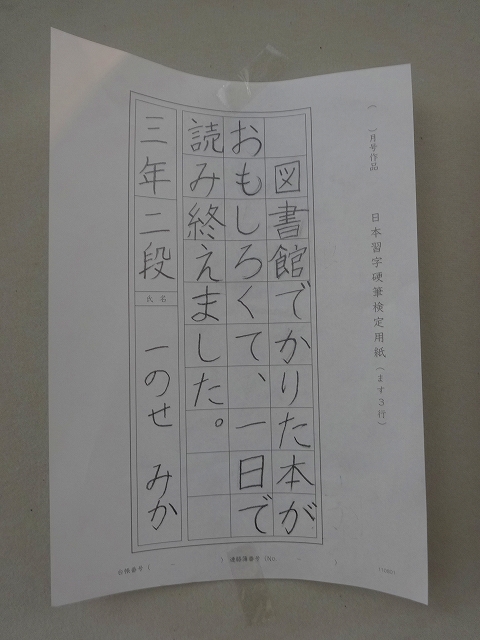 （　　）月号作品
日本習字硬筆検定用紙（ます3行）
図書館でかりた本が
おもしろくて、一日で
読み終えました。
三年 二段 氏名 一のせ みか
台帳番号（　　－　　）連絡簿番号（No.　　－　　）